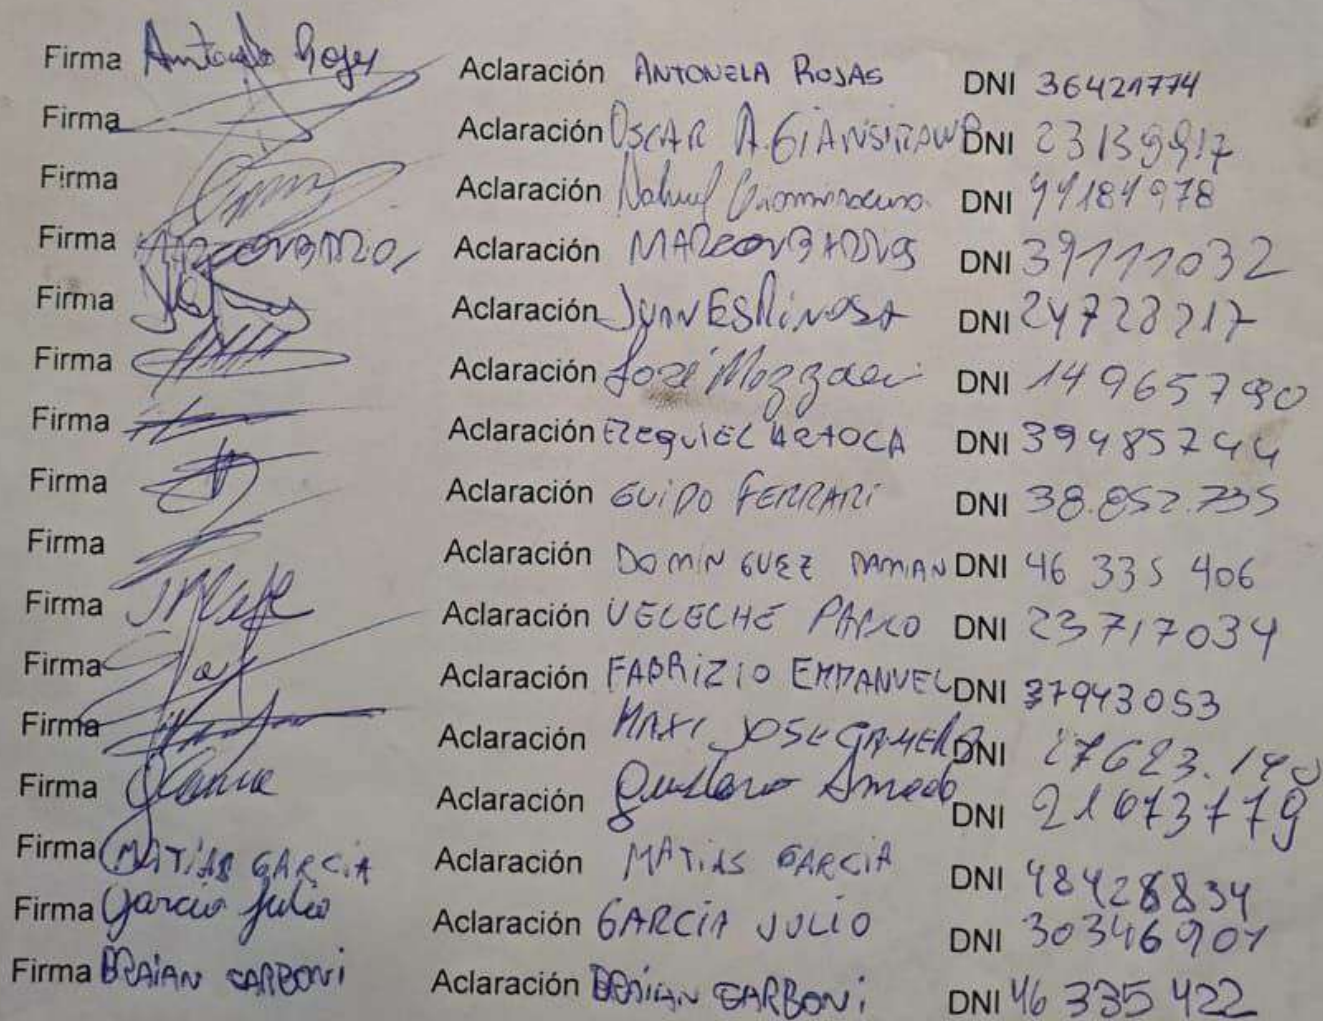 Firma Antonela Rojas Aclaración ANTONELA ROJAS DNI 36421774
Firma Aclaración OSCAR A. GIANSIRAW DNI 23139917
Firma Aclaración Nahuel DNI 44184978
Firma Aclaración DNI 39111032
Firma Aclaración JUAN ESPINOSA DNI 24728217
Firma Aclaración José DNI 14965790
Firma Aclaración EZEQUIEL DNI 39485744
Firma Aclaración GUIDO FERRARI DNI 38.852.735
Firma Aclaración DOMINGUEZ DAMIAN DNI 46 335 406
Firma Aclaración VELECHE PABLO DNI 23717034
Firma Aclaración FABRIZIO EMMANUEL DNI 37943053
Firma Aclaración MAXI JOSE GAMERO DNI
Firma Aclaración Gustavo Amado DNI 21073779
Firma MATIAS GARCIA Aclaración MATIAS GARCIA DNI 48428834
Firma Garcia Julio Aclaración GARCIA JULIO DNI 30346901
Firma BRAIAN GARBONI Aclaración BRAIAN GARBONI DNI 46 335 422